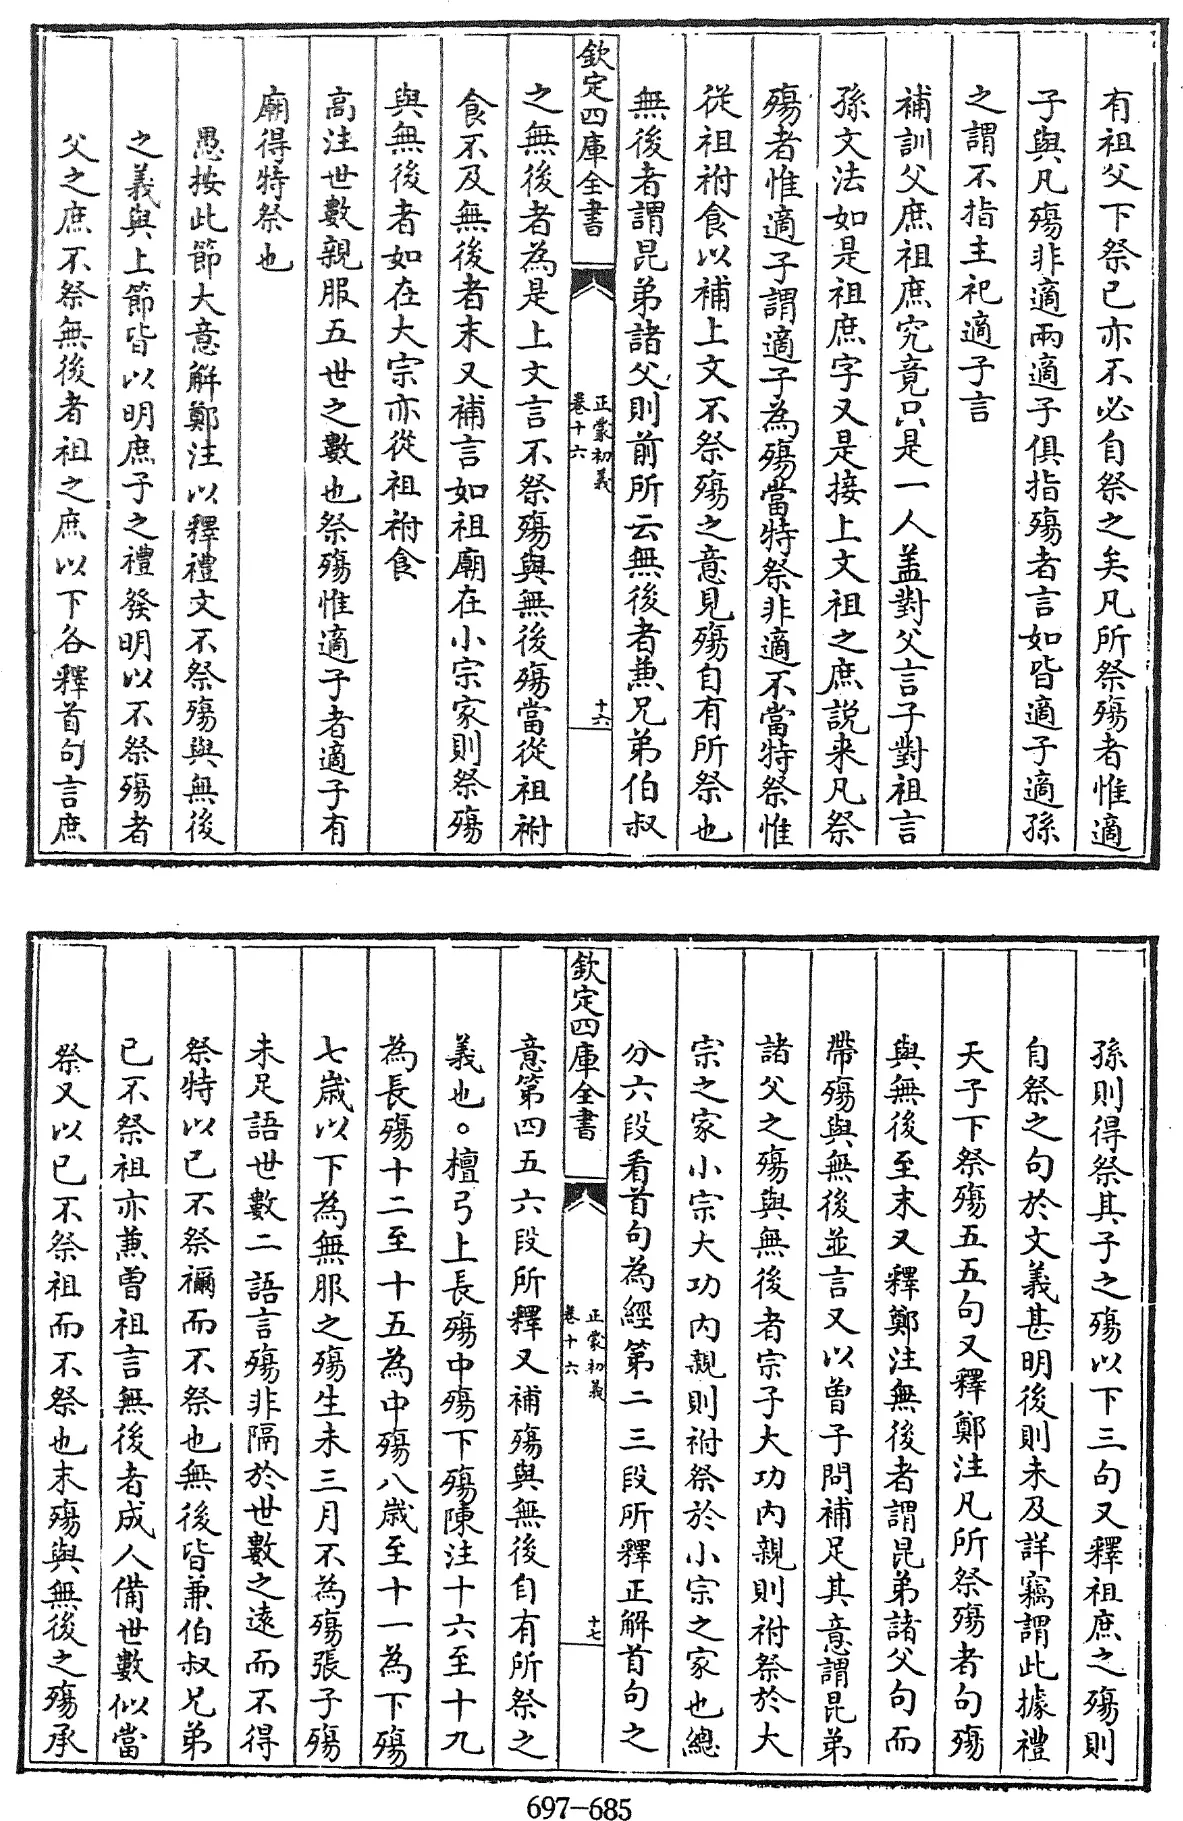 有祖父下祭已亦不必自祭之矣凡所祭殤者惟適
子與凡殤非適兩適子俱指殤者言如皆適子適孫
之謂不指主祀適子言
補訓父庶祖庶究竟只是一人盖對父言子對祖言
孫文法如是祖庶字又是接上文祖之庶説来凡祭
殤者惟適子謂適子為殤當特祭非適不當特祭惟
從祖祔食以補上文不祭殤之意見殤自有所祭也
無後者謂昆弟諸父則前所云無後者兼兄弟伯叔
欽定四庫全書
正蒙初義
卷十六
十六
之無後者為是上文言不祭殤與無後殤當從祖祔
食不及無後者末又補言如祖廟在小宗家則祭殤
與無後者如在大宗亦從祖祔食
高注世數親服五世之數也祭殤惟適子者適子有
廟得特祭也
愚按此節大意解鄭注以釋禮文不祭殤與無後
之義與上節皆以明庶子之禮發明以不祭殤者
父之庶不祭無後者祖之庶以下各釋首句言庶
孫則得祭其子之殤以下三句又釋祖庶之殤則
自祭之句於文義甚明後則未及詳竊謂此據禮
天子下祭殤五五句又釋鄭注凡所祭殤者句殤
與無後至末又釋鄭注無後者謂昆弟諸父句而
帶殤與無後並言又以曾子問補足其意謂昆弟
諸父之殤與無後者宗子大功内親則祔祭於大
宗之家小宗大功内親則祔祭於小宗之家也總
分六段看首句為經第二三段所釋正解首句之
欽定四庫全書
正蒙初義
卷十六
十七
意第四五六段所釋又補殤與無後自有所祭之
義也。檀弓上長殤中殤下殤陳注十六至十九
為長殤十二至十五為中殤八歳至十一為下殤
七歳以下為無服之殤生未三月不為殤張子殤
未足語世數二語言殤非隔於世數之遠而不得
祭特以已不祭禰而不祭也無後皆兼伯叔兄弟
已不祭祖亦兼曽祖言無後者成人備世數似當
祭又以已不祭祖而不祭也末殤與無後之殤承
697-685